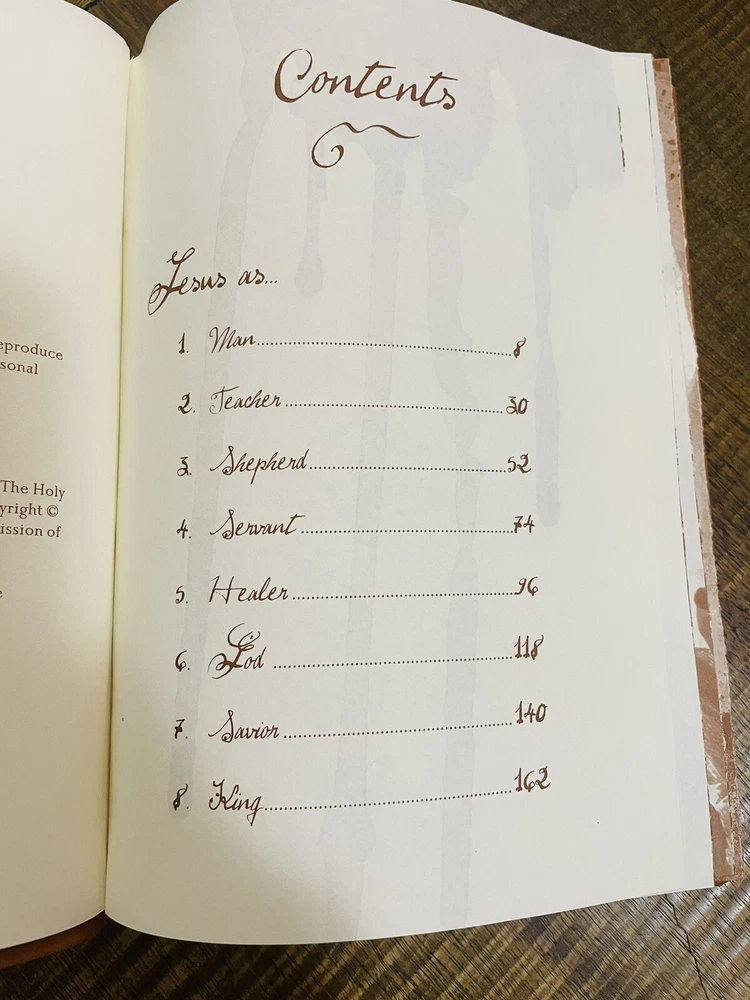 eproduce
sonal
The Holy
yright ©
ission of
e
Contents
Jesus as...
1. Man..............................................8
2. Teacher.......................................30
3. Shepherd...................................52
4. Servant.....................................74
5. Healer.......................................96
6. God...........................................118
7. Savior........................................140
8. King...........................................162